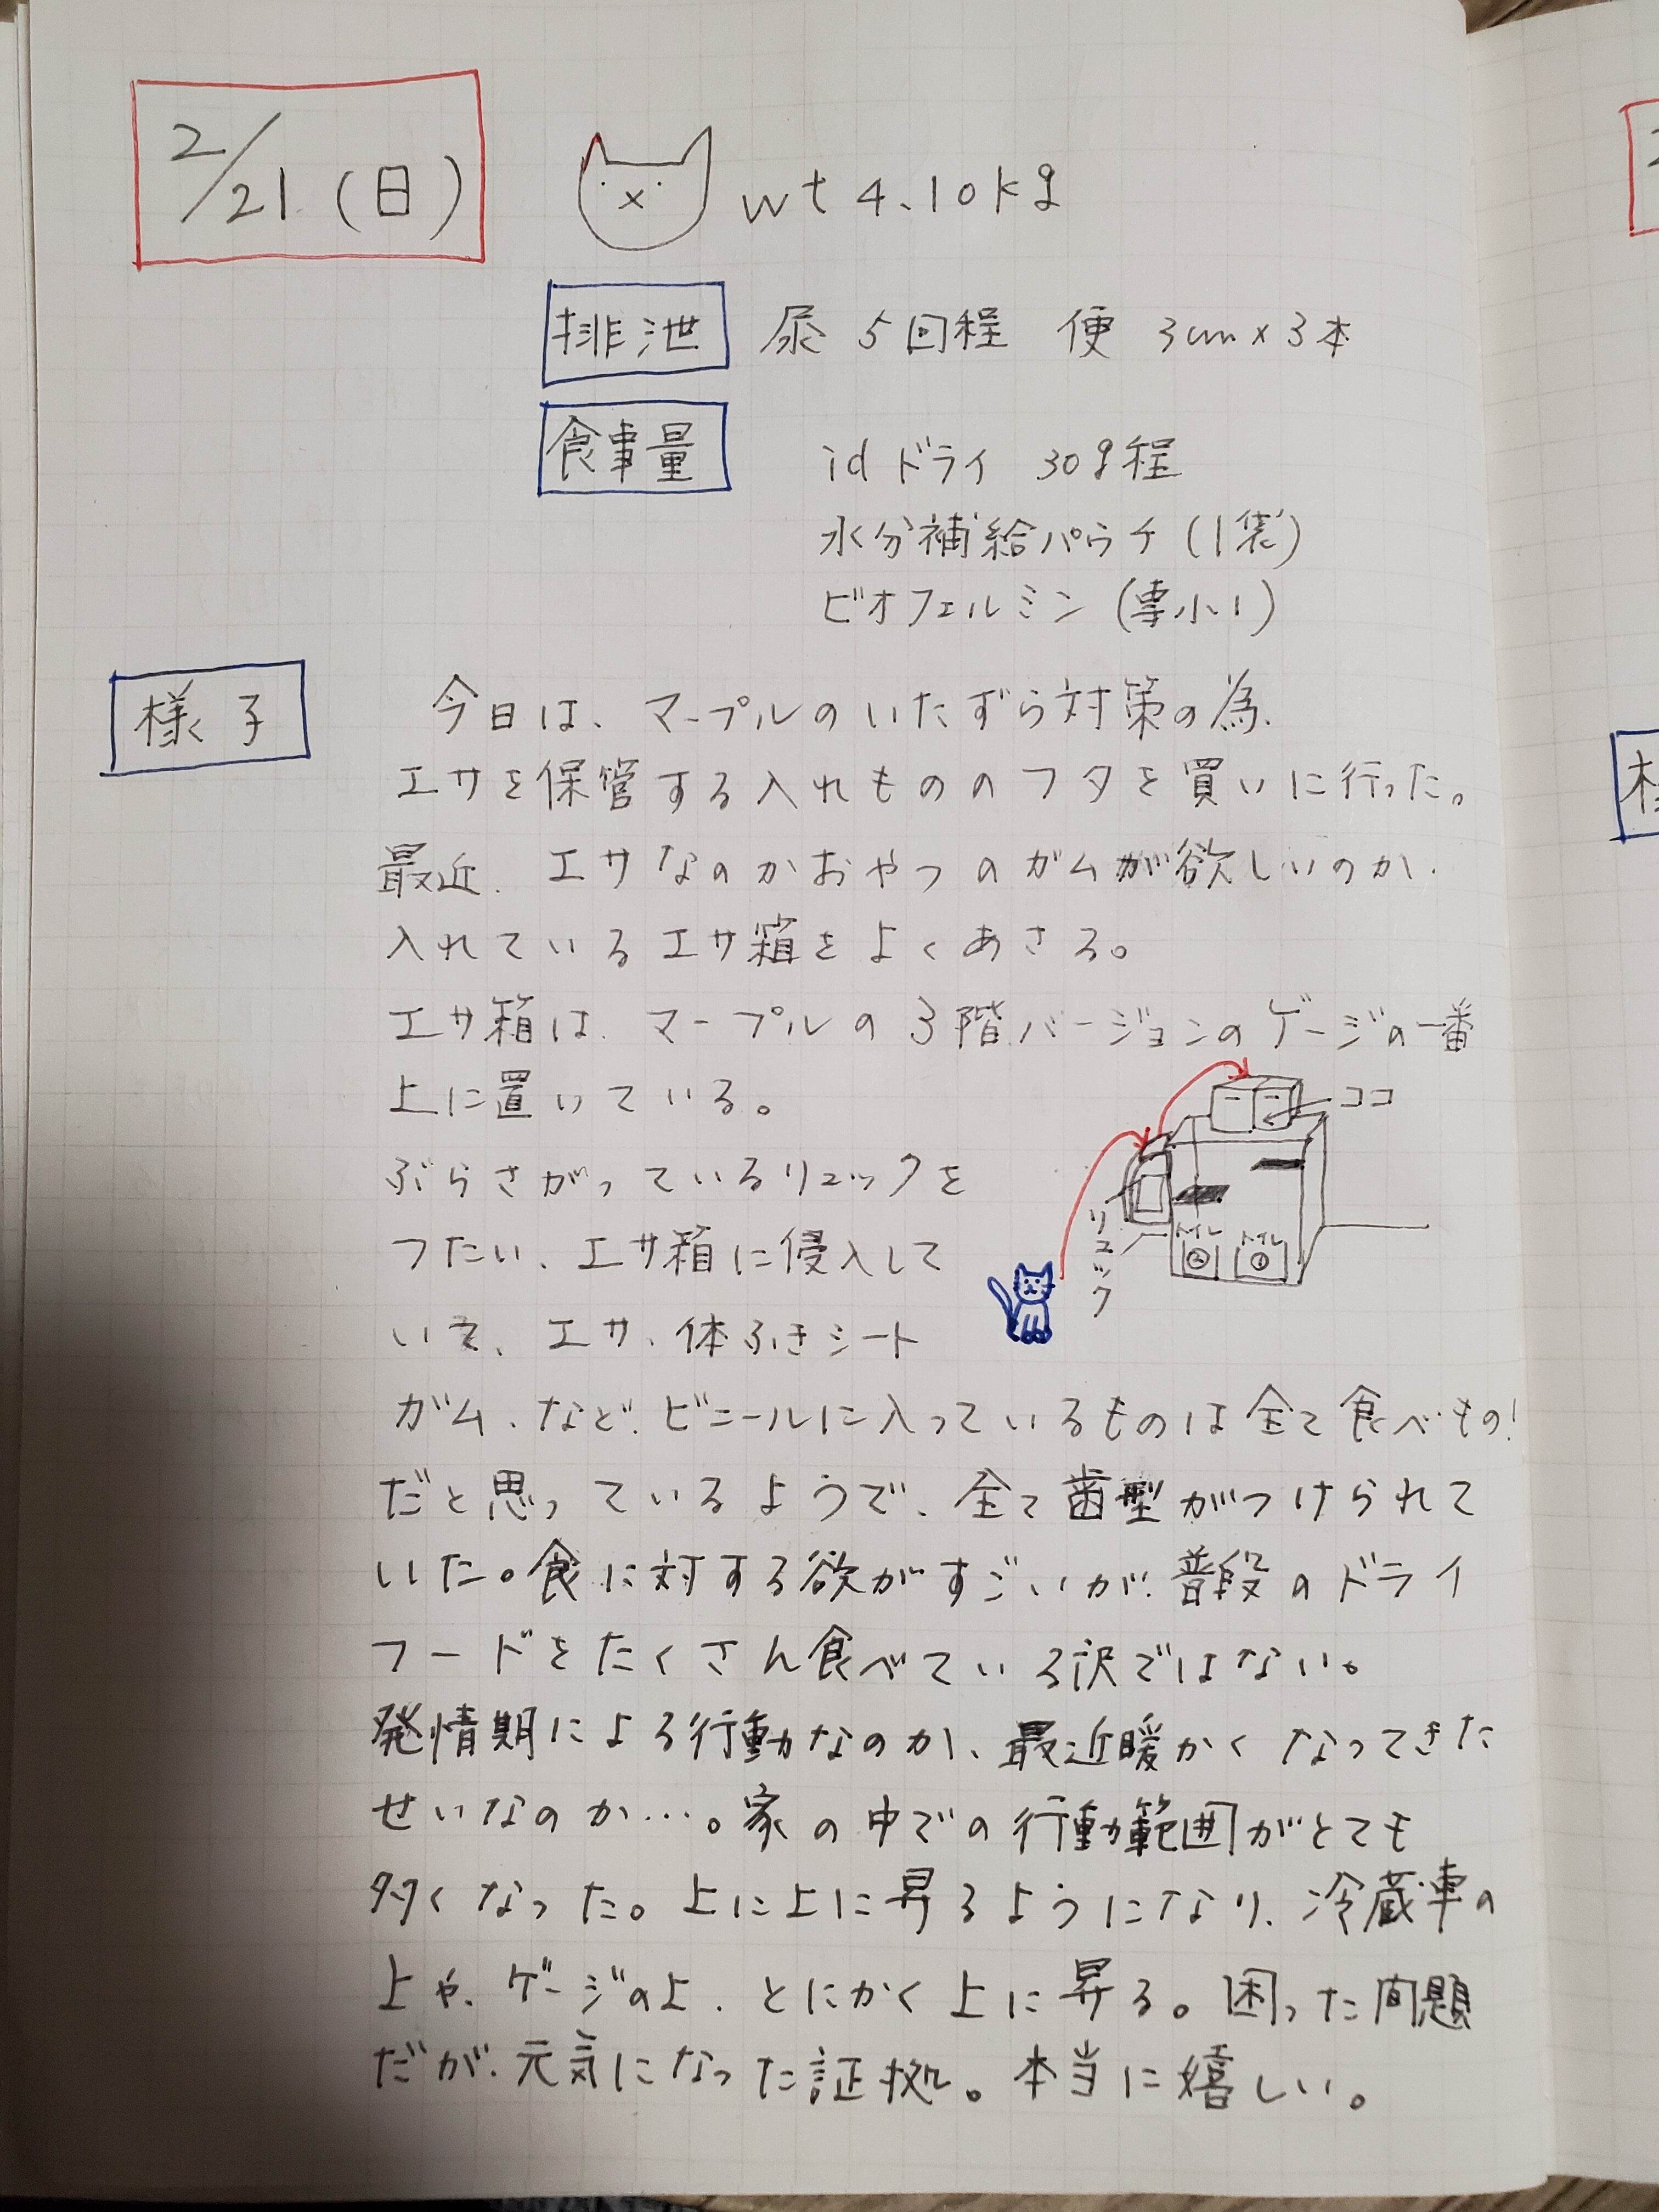 2/21(日)
wt 4.10kg
排泄 尿 5回程 便 3cm×3本
食事量 id ドライ 30g程
水分補給パウチ(1袋)
ビオフェルミン(専小1)
様子
今日は、マープルのいたずら対策の為、
エサを保管する入れもののフタを買いに行った。
最近、エサなのかおやつのガムが欲しいのか、
入れているエサ箱をよくあさる。
エサ箱は、マープルの3階バージョンのゲージの一番
上に置いている。
ココ
ぶらさがっているリュックを
つたい、エサ箱に侵入して
リュック
トイレ
②
トイレ
①
いて、エサ、体ふきシート
ガム、など、ビニールに入っているものは全て食べもの!
だと思っているようで、全て歯型がつけられて
いた。食に対する欲がすごいが、普段のドライ
フードをたくさん食べている訳ではない。
発情期による行動なのか、最近暖かくなってきた
せいなのか…。家の中での行動範囲がとても
多くなった。上に上に昇るようになり、冷蔵庫の
上や、ゲージの上、とにかく上に昇る。困った問題
だが、元気になった証拠。本当に嬉しい。